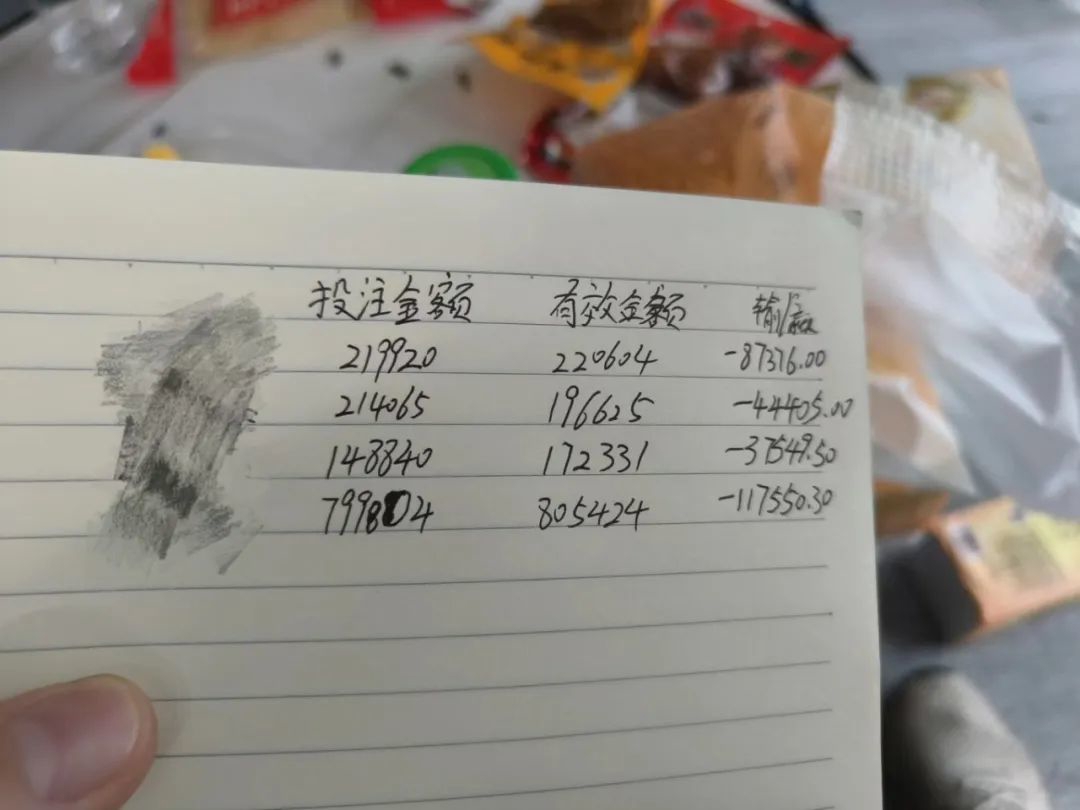 投注金额 有效金额 输/赢
219920 220604 -87376.00
214065 196625 -44405.00
148840 172331 -37549.50
799804 805424 -117550.30